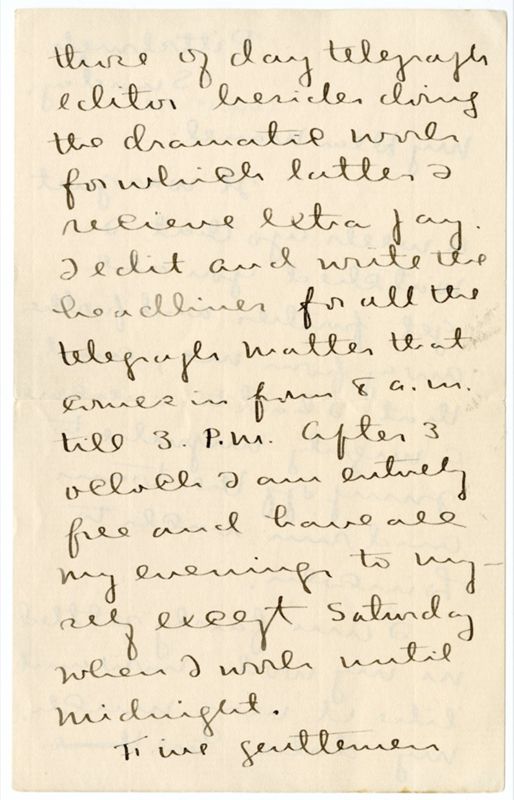 those of day telegraph
editor besides doing
the dramatic work
for which latter I
recieve extra pay.
I edit and write the
headlines for all the
telegraph matter that
comes in from 8 a.m.
till 3 P.M. After 3
oclock I am entirely
free and have all
my evenings to my-
self except Saturday
when I work until
midnight.
Five gentlemen